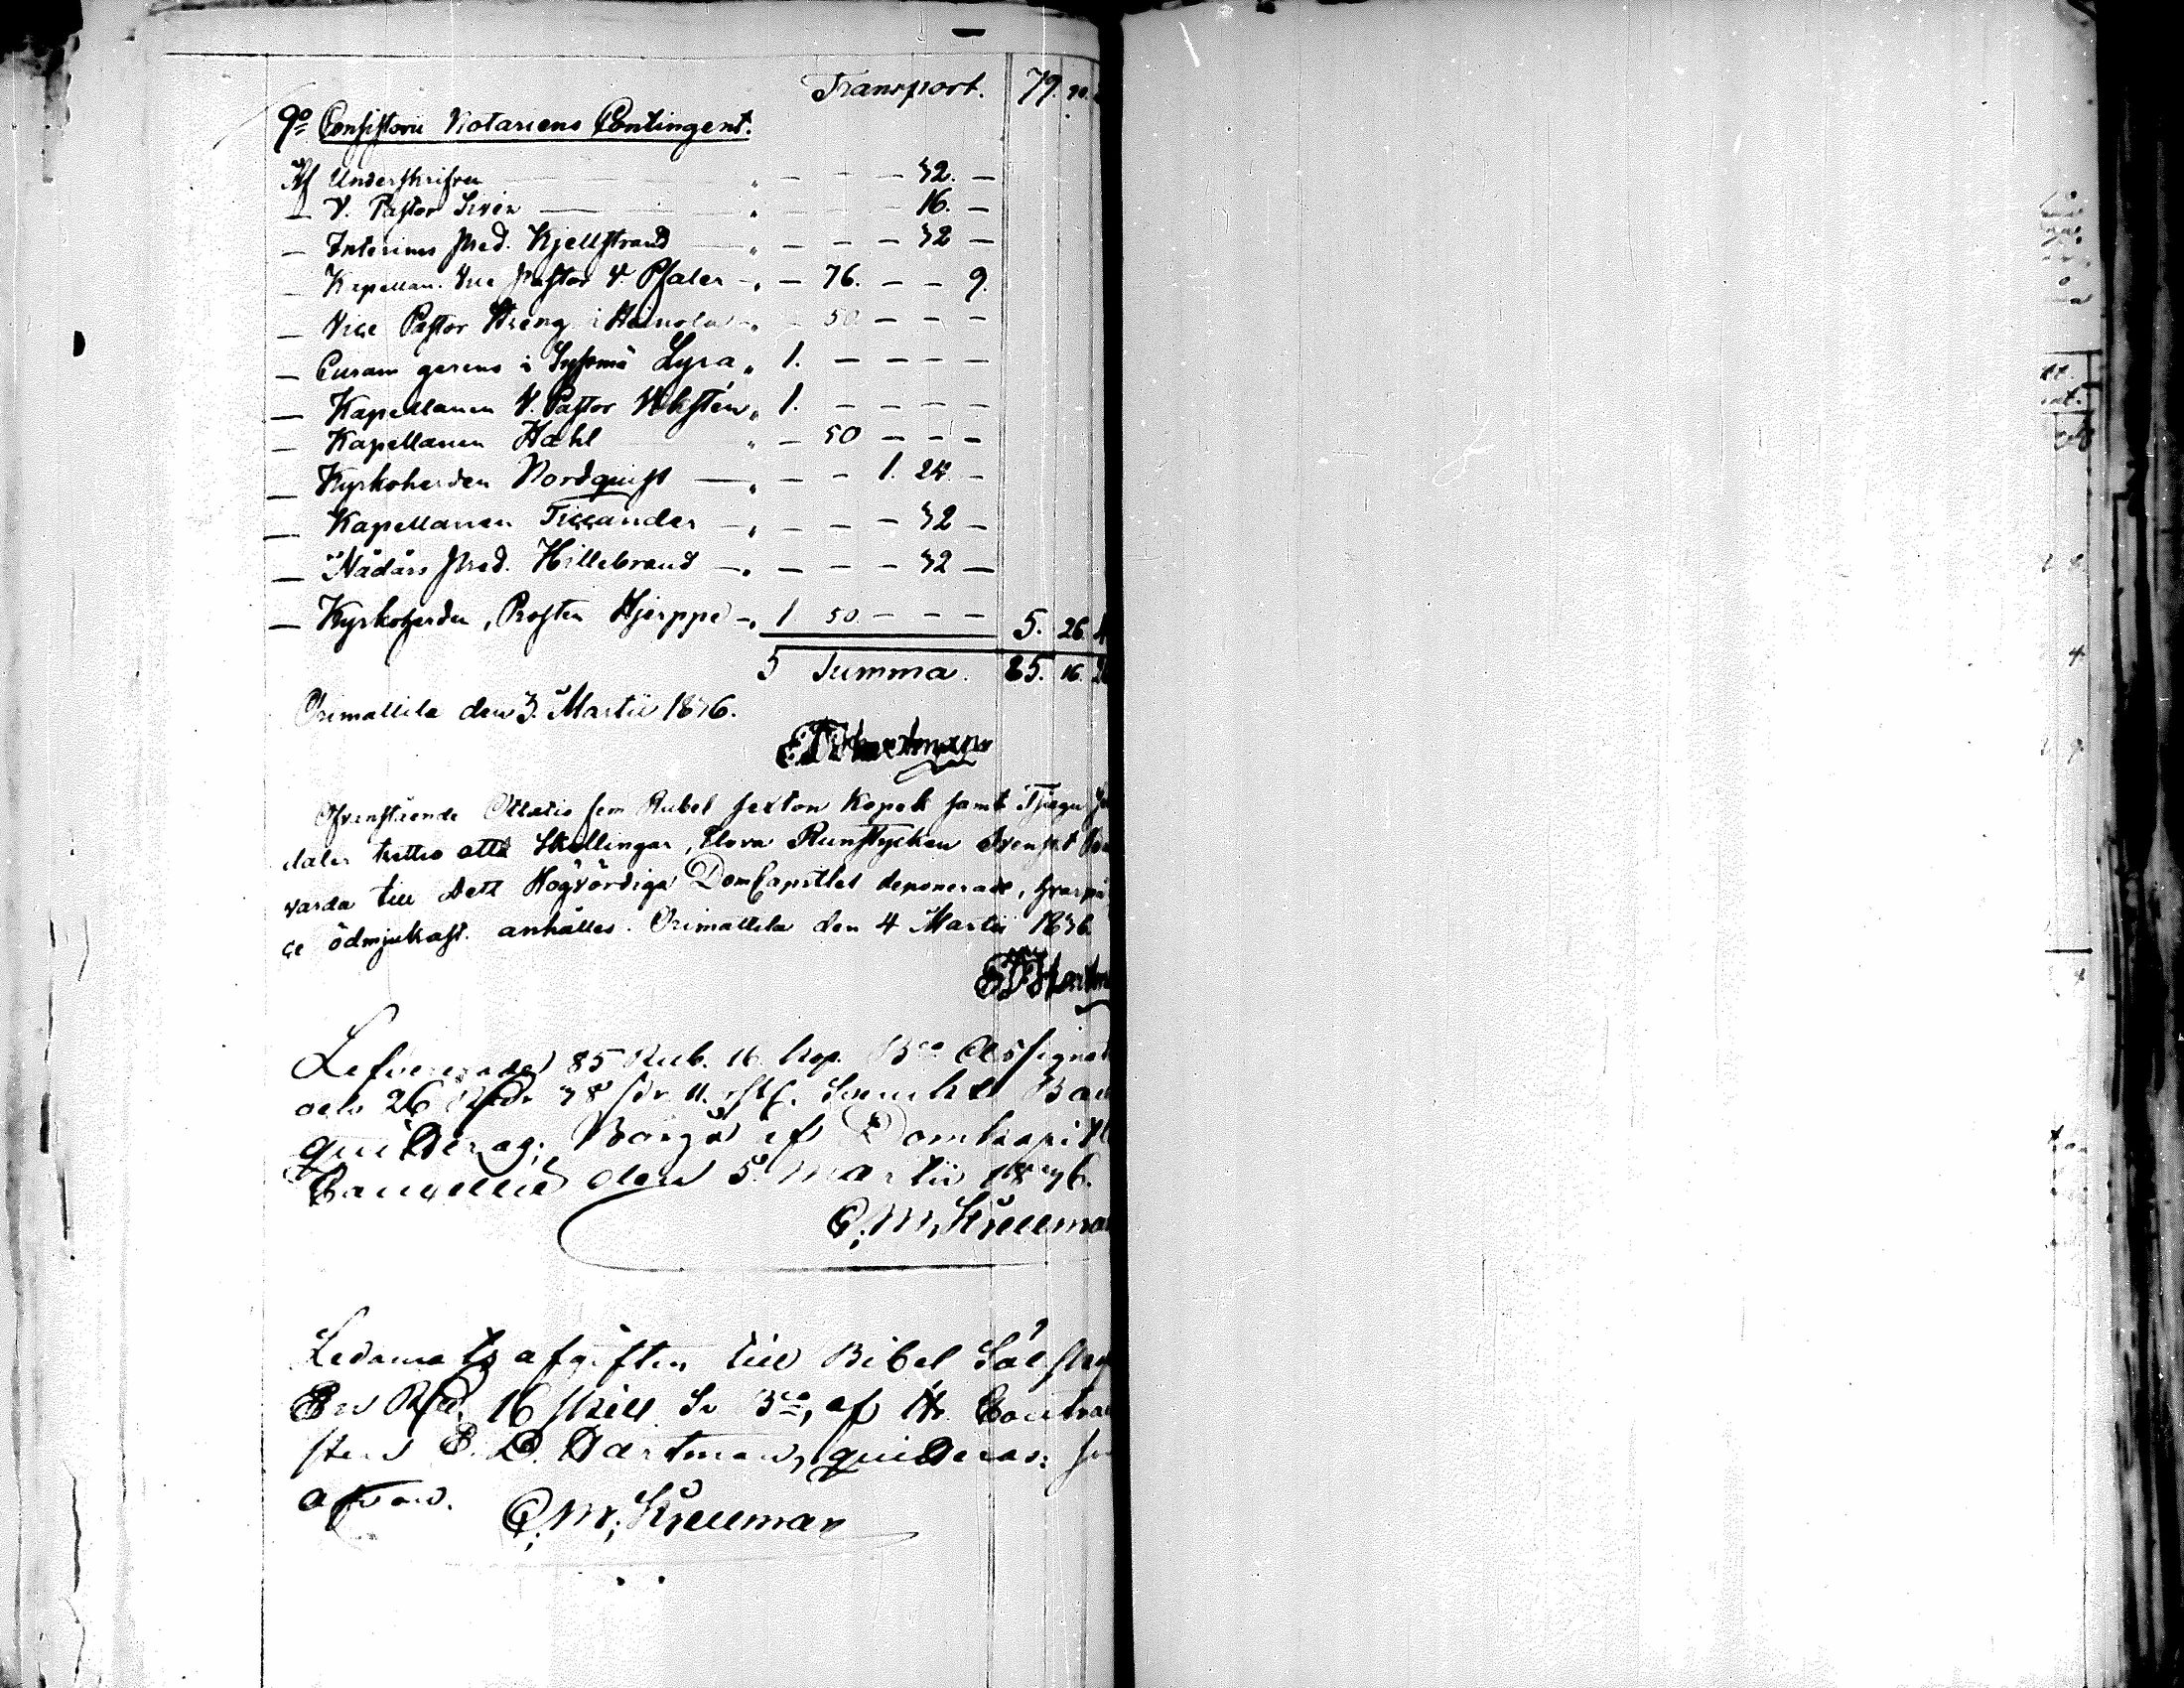 Transport. 79. 90.
9o Consistorii Notariens Contingent.
Af Underskrifven " - - - 32. -
— V. Pastor Sirén — " - - - 16. -
— Interims Pred. Kjellstrand — " - - - 32 -
— Kapellan. Vice Pastor V. Pfaler - " - 76. - - 9.
— Vice Pastor Streng i Heinola - " - 50 - - -
— Curam gerens i Sysmä Lyra " 1. - - - -
— Kapellanen V. Pastor " 1. - - - -
— Kapellanen Hahl " - 50 - - -
— Kyrkoherden Nordquist — " - - 1. 24. -
— Kapellanen Ticcander - " - - - 32 -
— Nådårs Pred. Hillebrand - " - - - 32 -
— Kyrkoherden, Prosten Hjerppe - " 1 50 - - - 5. 26.
Summa. 85. 16.
Orimattila den 3. Martii 1836.
E D Hartman
Ofvanstående Ottatio fem Rubel sexton Kopek samt Tjugu
daler trettio otta Skillingar, Elova Runstycken Svenskt
varda till Dett Högvördiga DomCapitlet deponerade, hvarpå
ce ödmjukast anhålles. Orimattila den 4 Martii 1836.
E D Hartm
Lefvererade 85 Rub. 16 kop. Bco Assignat
och 26 Rdr 38 sk. 11. rst. Svenskt Ban
quitteras; Borgå af Domkapitl
Cancellie den 5 Martii 1836.
Ledamots afgiften till Bibel Sälskap
En Rd. 16 skill. Sv Bco, af Hr Contra
sten E. D. Hartman, quitteras;
afvan.